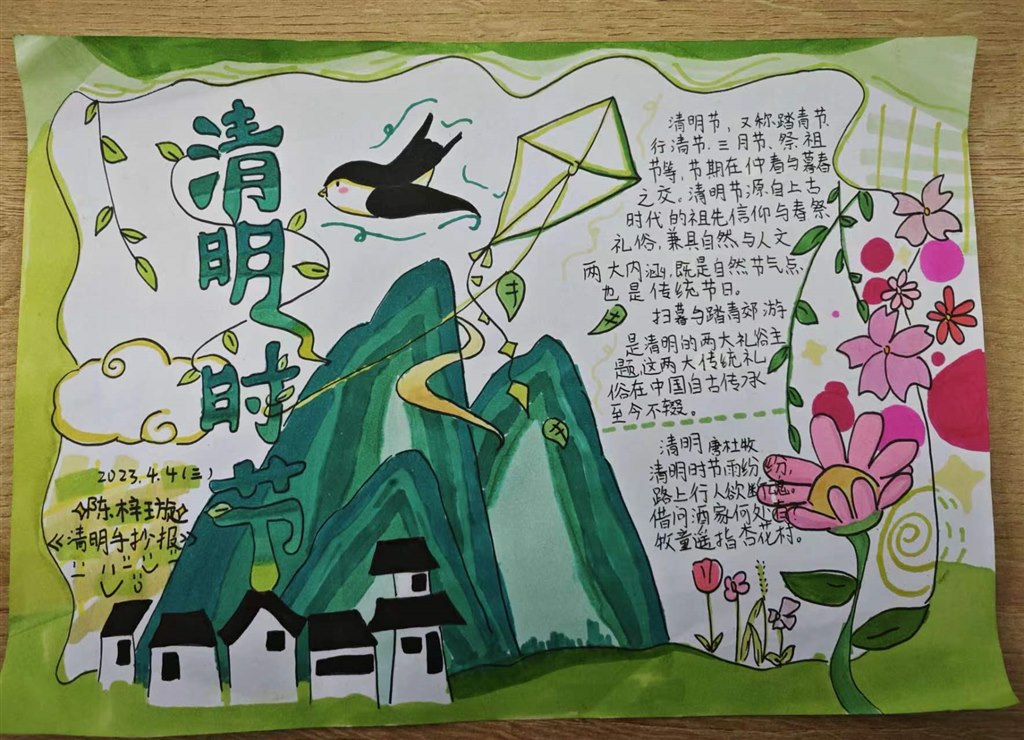 清明时节
清明节，又称踏青节
行清节、三月节、祭祖
节等，节期在仲春与暮春
之交。清明节源自上古
时代的祖先信仰与春祭
礼俗，兼具自然与人文
两大内涵，既是自然节气点
也是传统节日。
扫墓与踏青郊游
是清明的两大礼俗主
题，这两大传统礼
俗在中国自古传承
至今不辍。
清明 唐杜牧
清明时节雨纷纷，
路上行人欲断魂。
借问酒家何处有
牧童遥指杏花村。
2023.4.4(三)
陈梓璇
《清明手抄报》